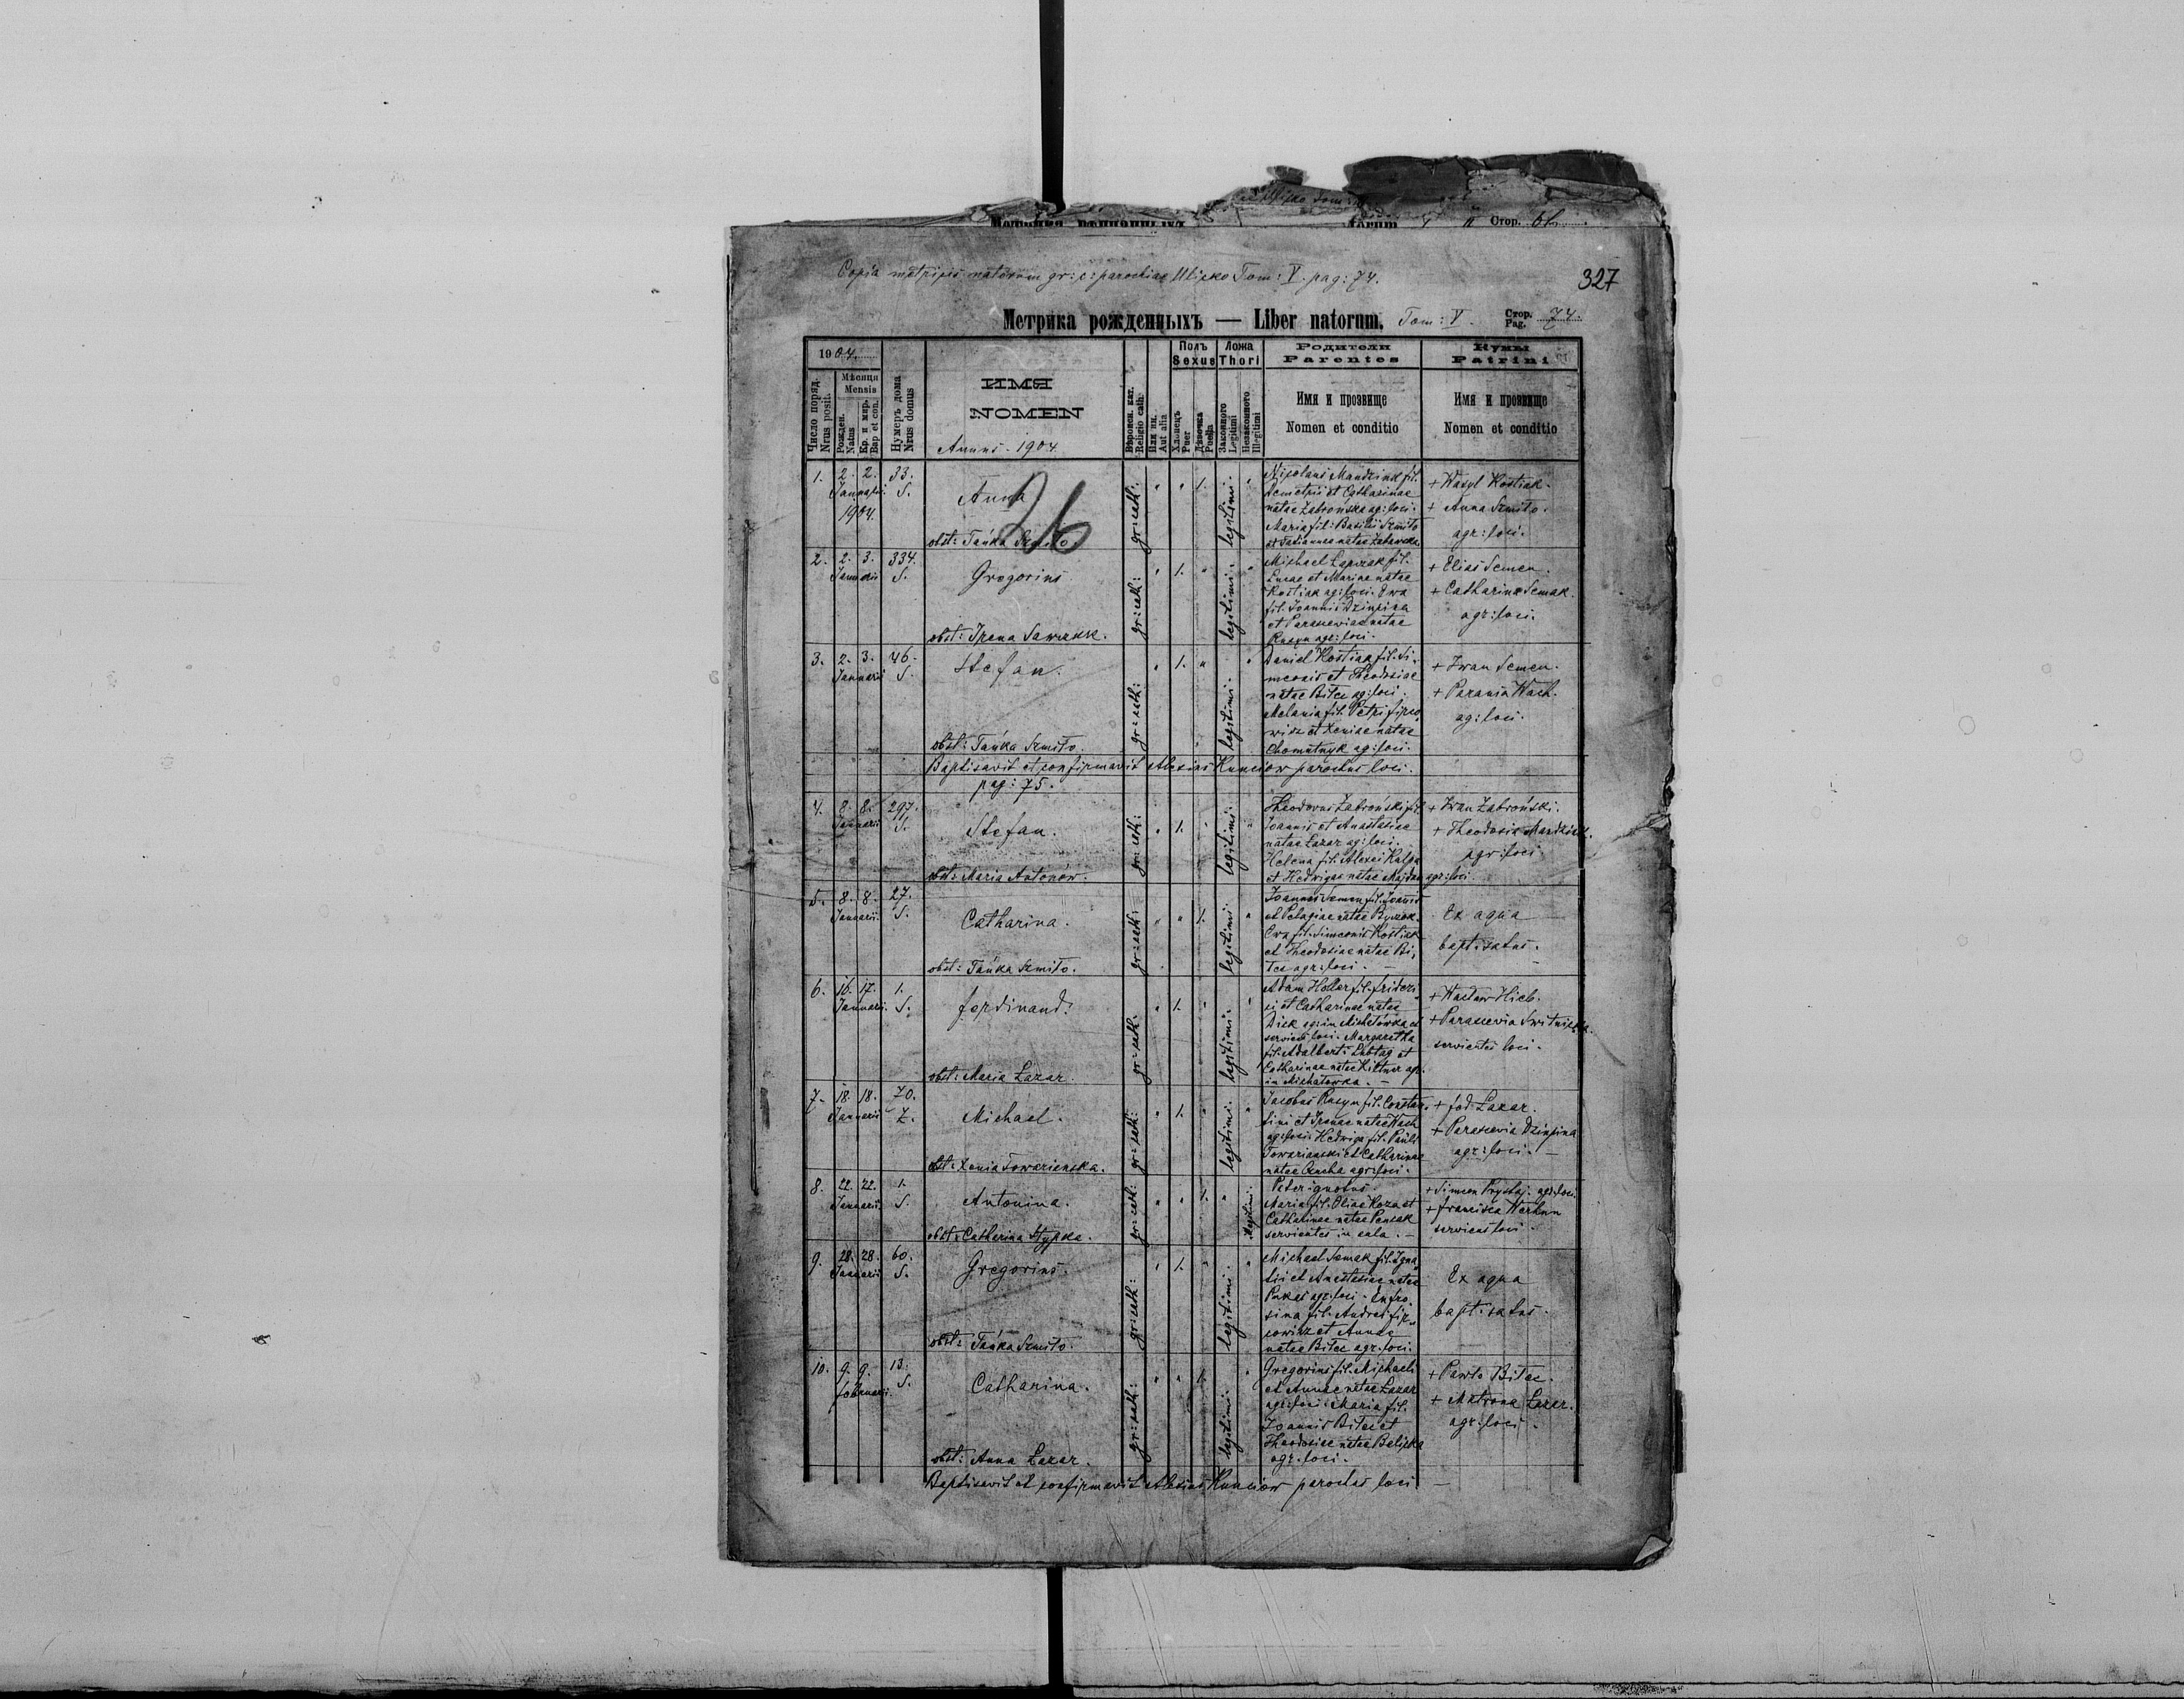 Стор. 61
Copia metrices natorum gr: c: parochiae Uhjsko Tom: V. pag: 74.
327
Метрика рожденныхъ — Liber natorum. Tom: V. Стор. Pag. 74.
1904.
Число поряд. Nrus posit.
Мѣсяця Mensis
Рожден. Natus
Кр. и мир. Bap et con.
Нумеръ дома Nrus domus
ИМЯ
NOMEN
Anni 1904
Вѣроисп. кат. Religio cath.
Или ин. Aut alia
Полъ
Sexus
Хлопецъ Puer
Дѣвочка Puella
Ложа
Thori
Законного Legitimi
Незаконного Illegitimi
Родители
Parentes
Имя и прозвище
Nomen et conditio
Кумы
Patrini
Имя и прозвище
Nomen et conditio
1. 2. 2. 33.
Januarii S.
1904.
Anna
26
obst: Tańka Szmiło
gr: cath: " " 1. legitimi. "
Nicolaus Mandziuk fil.
Demetrii et Catharinae
natae Zabrońska ag: loci.
Maria fil: Basilii Szmiło
et Tatiannae natae
+ Wasyl Kostiak.
+ Anna Szmiło.
agr: loci.
2. 2. 3. 334.
Januarii S.
Gregorius
obst: Irena Sawczuk.
gr: cath: " 1. " legitimi. "
Michael Łapczak fil.
Lucae et Mariae natae
Kostiak ag: loci. Ewa
fil. Joannis Dzinzira
et Parasceviae natae
Rusyn agr: loci.
+ Elias Semen.
+ Catharina Semak.
agr: loci.
3. 2. 3. 46.
Januarii S.
Stefan.
obst: Tańka Szmiło.
gr: cath: " 1. " legitimi. "
Daniel Kostiak fil. Si-
meonis et Theodosiae
natae Bitec ag: loci.
Melania fil. Petri
et Xeniae natae
Chomutnyk ag: loci.
+ Iwan Semen.
+ Parania Wach.
ag: loci.
Baptisavit et confirmavit Alexius Kunciow parochus loci.
pag: 75.
4. 8. 8. 297.
Januarii S.
Stefan.
obst: Maria Antonów.
gr: cath: " 1. " legitimi. "
Theodorus Zabroński fil.
Joannis et Anastasiae
natae Lazar ag: loci.
Helena fil. Alexii Kulpa
et Hedwigae natae Majdan agr: loci.
+ Iwan Zabroński.
+ Theodosia Mandziuk.
agr: loci.
5. 8. 8. 27.
Januarii S.
Catharina.
obst: Tańka Szmiło.
gr: cath: " " 1. legitimi. "
Joannes Semen fil. Joannis
et Pelagiae natae
Ewa fil. Simeonis Kostiak
et Theodosiae natae Bi-
tec agr: loci. —
Ex aqua
baptisatus.
6. 16. 17. 1.
Januarii. S.
Ferdinand.
obst: Maria Lazar.
gr: cath: " 1. " legitimi. "
Adam Heller fil. Frideri-
ci et Catharinae natae
Dick ag: in Michałówka et
serviens loci. Margaretha
fil. Adalberti et
Catharinae natae Kittner agr:
in Michałówka. —
+ Hieb.
+ Parascevia
servientes loci.
7. 18. 18. 70.
Januarii Z.
Michael.
obst: Xenia Towarienska.
gr: cath: " 1. " legitimi. "
Jacobus Rusyn fil. Constan-
tini et Irenae natae Wach
agr: loci. Hedwiga fil. Pauli
Towarianski et Catharinae
natae agr: loci.
+ Fod: Lazar.
+ Parascevia Dzinzira
agr: loci. —
8. 22. 22. 1.
Januarii. S.
Antonina.
obst: Catherina Hypka.
gr: cath: " " 1. " illegitimi.
Pater ignotus.
Maria fil. Koza et
Catharinae natae Pensak
servientes in aula. —
+ Simeon Prystaj. agr. loci
+ Francisca
serviens loci.
9. 28. 28. 60.
Januarii S.
Gregorius.
obst: Tańka Szmiło.
gr: cath: " 1. " legitimi. "
Michael Semak fil. Igna-
tii et Anastasiae natae
Pukas agr: loci. Eufro-
sina fil. Andrei
et Annae
natae Bitec agr. loci.
Ex aqua
baptisatus.
10. 9. 9. 13.
Februarii. S.
Catharina.
obst: Anna Lazar.
gr: cath: " " 1. legitimi. "
Gregorius fil. Michaeli
et Annae natae Lazar
agr: loci. Maria fil.
Joannis Bitec et
Theodosiae natae
agr. loci.
+ Pawło Bitec.
+ Matrona Lazar.
agr: loci.
Baptisavit et confirmavit Alexius Kunciow parochus loci —